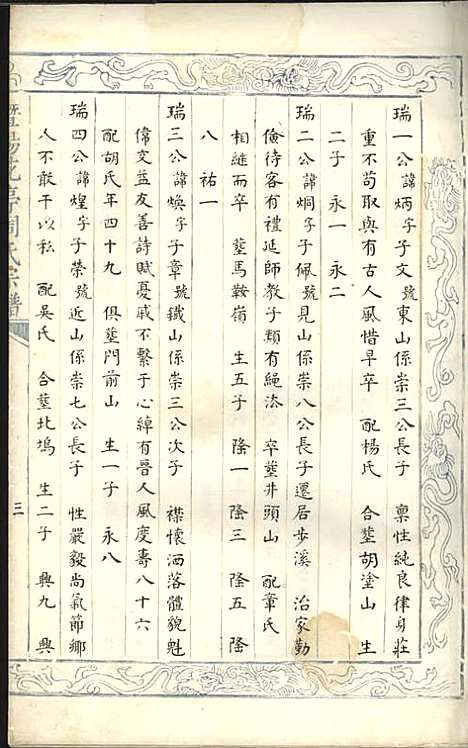 瑞一公諱炳字子文號東山係崇三公長子 稟性純良律身莊
重不苟取與有古人風惜早卒 配楊氏 合塟胡塗山 生
二子 永一 永二
瑞二公諱烱字子佩號見山係崇八公長子遷居步溪 治家勤
儉待客有禮延師教子頗有繩法 卒塟井頭山 配章氏
相繼而卒 塟馬鞍嶺 生五子 隆一 隆三 隆五 隆
八 祐一
瑞三公諱煥字子章號鐵山係崇三公次子 襟懷洒落體貌魁
偉文益友善詩賦憂戚不繫于心綽有晉人風度壽八十六
配胡氏年四十九 俱塟門前山 生一子 永八
瑞四公諱煌字子榮號近山係崇七公長子 性嚴毅尚氣節鄉
人不敢干以私 配吳氏 合塟北塢 生二子 興九 興
暨陽花亭周氏宗譜
三